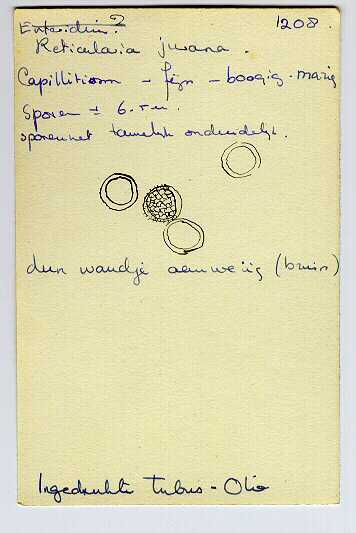 Enteridium? 1208.
Reticularia jurana.
Capillitium - fijn - boogig - mazig
Sporen ± 6.5 u.
sporennet tamelijk onduidelijk.
dun wandje aanwezig (bruin)
Ingedrukte tubus - Olie